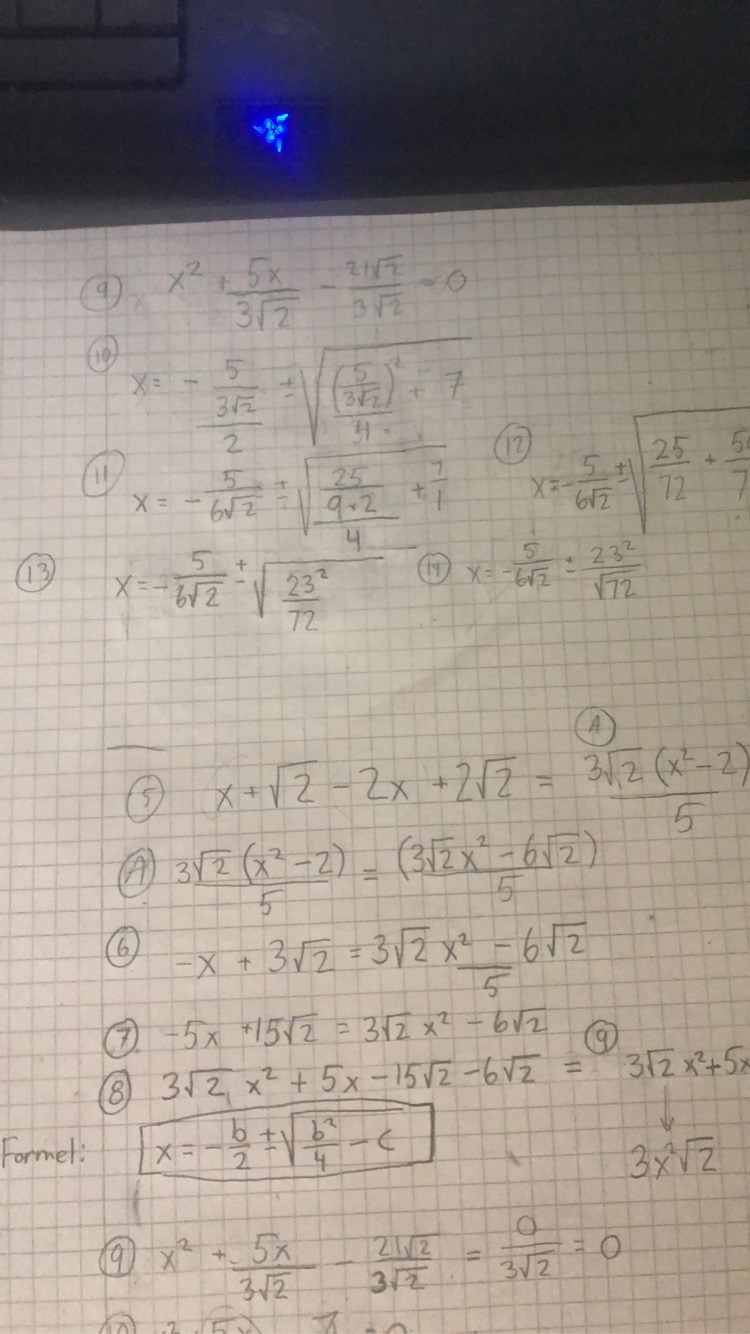 ⑨ x² + 5x/(3√2) - 21√2/(3√2) = 0
⑩ x = - (5/(3√2))/2 ± √((5/(3√2))²/4 + 7)
⑪ x = - 5/(6√2) ± √((25/(9·2))/4 + 7/1)
⑫ x = - 5/(6√2) ± √(25/72 + 50/7
⑬ x = - 5/(6√2) ± √(23²/72)
⑭ x = - 5/(6√2) ± 23²/√72
Ⓐ
⑤ x + √2 - 2x + 2√2 = 3√2 (x² - 2)/5
Ⓐ 3√2 (x² - 2)/5 = (3√2x² - 6√2)/5
⑥ -x + 3√2 = 3√2 x² - 6√2/5
⑦ -5x + 15√2 = 3√2 x² - 6√2
⑧ 3√2 x² + 5x - 15√2 - 6√2 = ⑨ 3√2 x² + 5x
↓
3x²√2
Formel: x = - b/2 ± √(b²/4 - c)
⑨ x² + 5x/(3√2) - 21√2/(3√2) = 0/(3√2) = 0